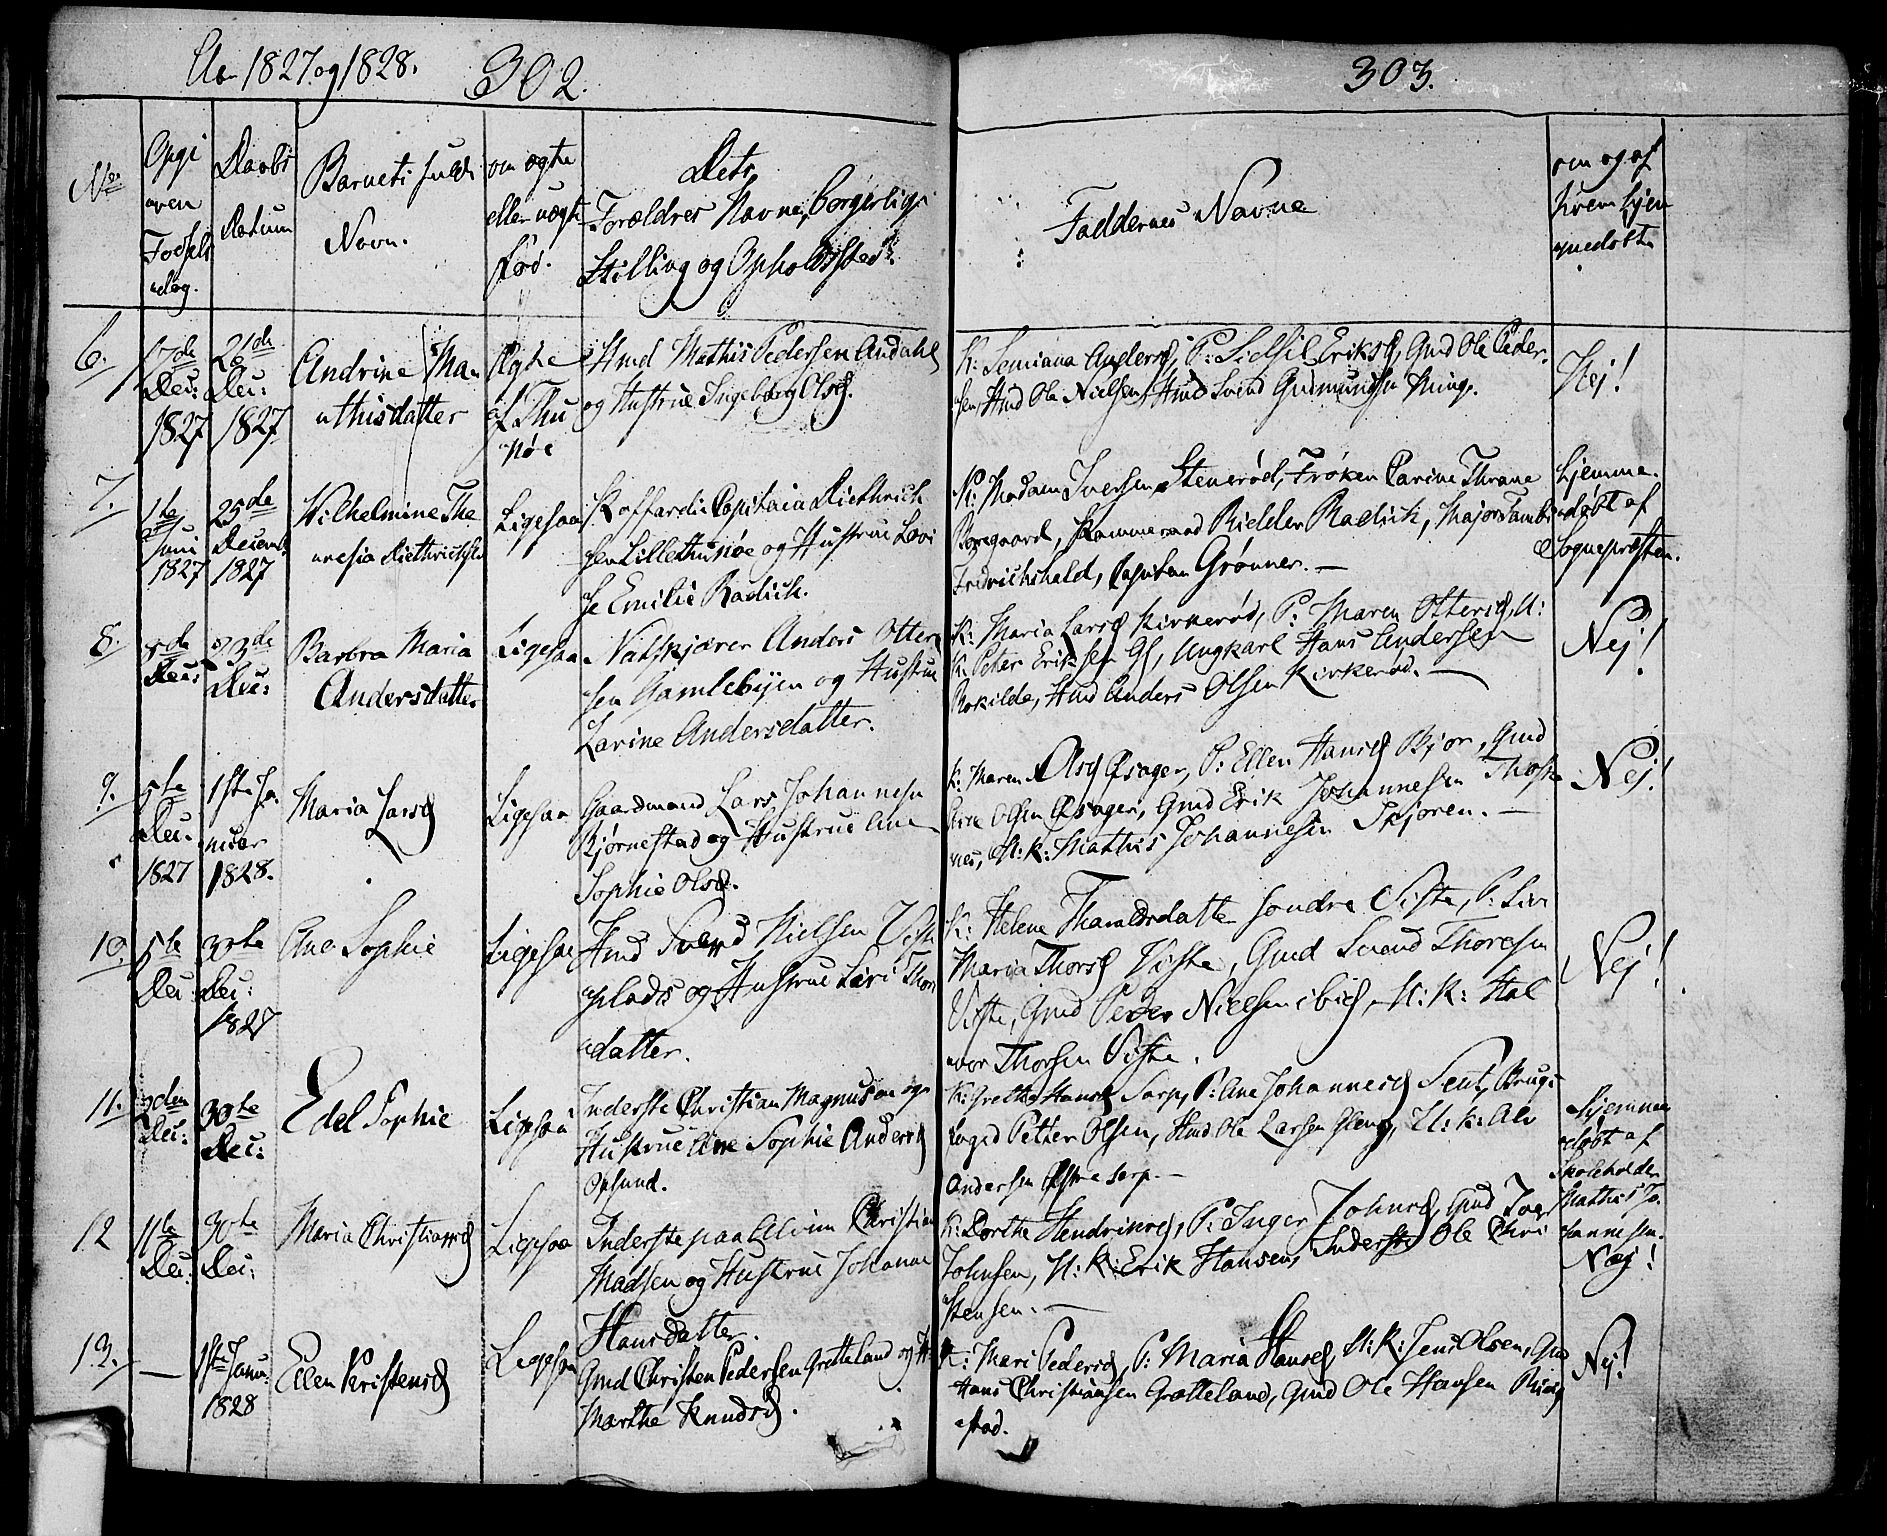 Aar 1827 og 1828. 302.
303.
No.
Opgi
aven
Fødsels
adag.
Daabs
Datum
Barnets fulde
Navn.
om ægte
eller uægte
fød.
Dets
Forældres Navne, borgerlige
Stilling og Opholdssted.
Faddernes Navne
om og af
hvem hjem
medøbt
6.
17de
Dec:
1827
26de
Dec:
1827
Andrine Ma
athisdatter
Ægte
af Thu
nøe
Hmd Mathis Pedersen Andahl
og Hustrue Ingeborg Olsd.
K: Andersd, P: Eriksd, Gmd Ole Peder
sen, Hmd Ole Nielsen, Hmd Svend Gudmundsen Ning.
Nej!
7.
1ste
Juni
1827
25de
Decemb.
1827
Wilhelmine The
aresia Diethrichsen
Ligesaa
Koffardie Capitain Diethrich
sen Lillethunøe og Hustrue Lovi
se Emilie Radich.
K: Madam Iversen Stenerød, Frøken Carine Thrane
Kammeraad Ridder Radich, Major
Fredrichshald, Capitain Grønner. —
hjemme
døbt af
Sognepræsten.
8.
8de
Dec:
23de
Dec:
Barbra Maria
Andersdatter
Ligesaa
Natskjærer Anders Otter
sen Gamlebyen og Hustrue
Larine Andersdatter.
K: Maria Larsd Kirkerød, P: Maren Ottersd, U:
K: Peter Eriksen Gl, Ungkarl Hans Andersen
Rokilde, Hmd Anders Olsen Kirkerød. —
Nej!
9.
5te
Dec.
1827
1ste Ja
nuar
1828.
Maria Larsd
Ligesaa
Gaardmand Lars Johannesen
Bjørnestad og Hustrue Ane
Sophie Olsd.
K: Maren Olsd Øsager, P: Ellen Hansd Skjør, Gmd
Arne Olsen Øsager, Gmd Erik Johannesen
nes, U: K: Mathis Johannesen Skjøren. —
Nej!
10.
5te
Dec
30te
Dec:
1827
Ane Sophie
Ligesaa
Hmd Svend Nielsen Viste
aplads og Hustrue Siri Thors
adatter.
K: Helene Tharaldsdatter søndre Viste, P: Siri
Maria Thorsd Viste, Gmd Svend Thoresen
Viste, Gmd Peder Nielsen ibid, U: K: Hal
avor Thorsen Viste.
Nej!
11.
Dec:
30te
Dec:
Edel Sophie
Ligesaa
Inderste Christian Magnusen og
Hustrue Ane Sophie Andersd
Opsund.
K: Grethe Hansd Sarp, P: Ane Johannesd Brugs
foged Petter Olsen, Hmd Ole Larsen Gleng, U: K: Alv
Andersen Østre Sarp. —
hjemme
døbt af
Skoleholder
Mathis Jo
hannesen.
12
11te
Dec:
30te
Dec:
Maria Christiansd
Ligesaa
Inderste paa Alvim Christian
Madsen og Hustrue Johanne
Hansdatter.
K: Dorthe Hendriksd, P: Inger Johnsd, Gmd Iver
Johnsen, U: K: Erik Hansen, Inderste Ole Chri
stensen. —
Nej!
13.
—
1ste Janu.
1828
Ellen Kristensd
Ligesaa
Gmd Christen Pedersen Gretteland og H:
Marthe Knudsd.
K: Mari Pedersd, P: Maria Hansd, U: K: Jens Olsen, Gmd
Hans Christiansen Grotteland, Gmd Ole Hansen
stad.
Nej!